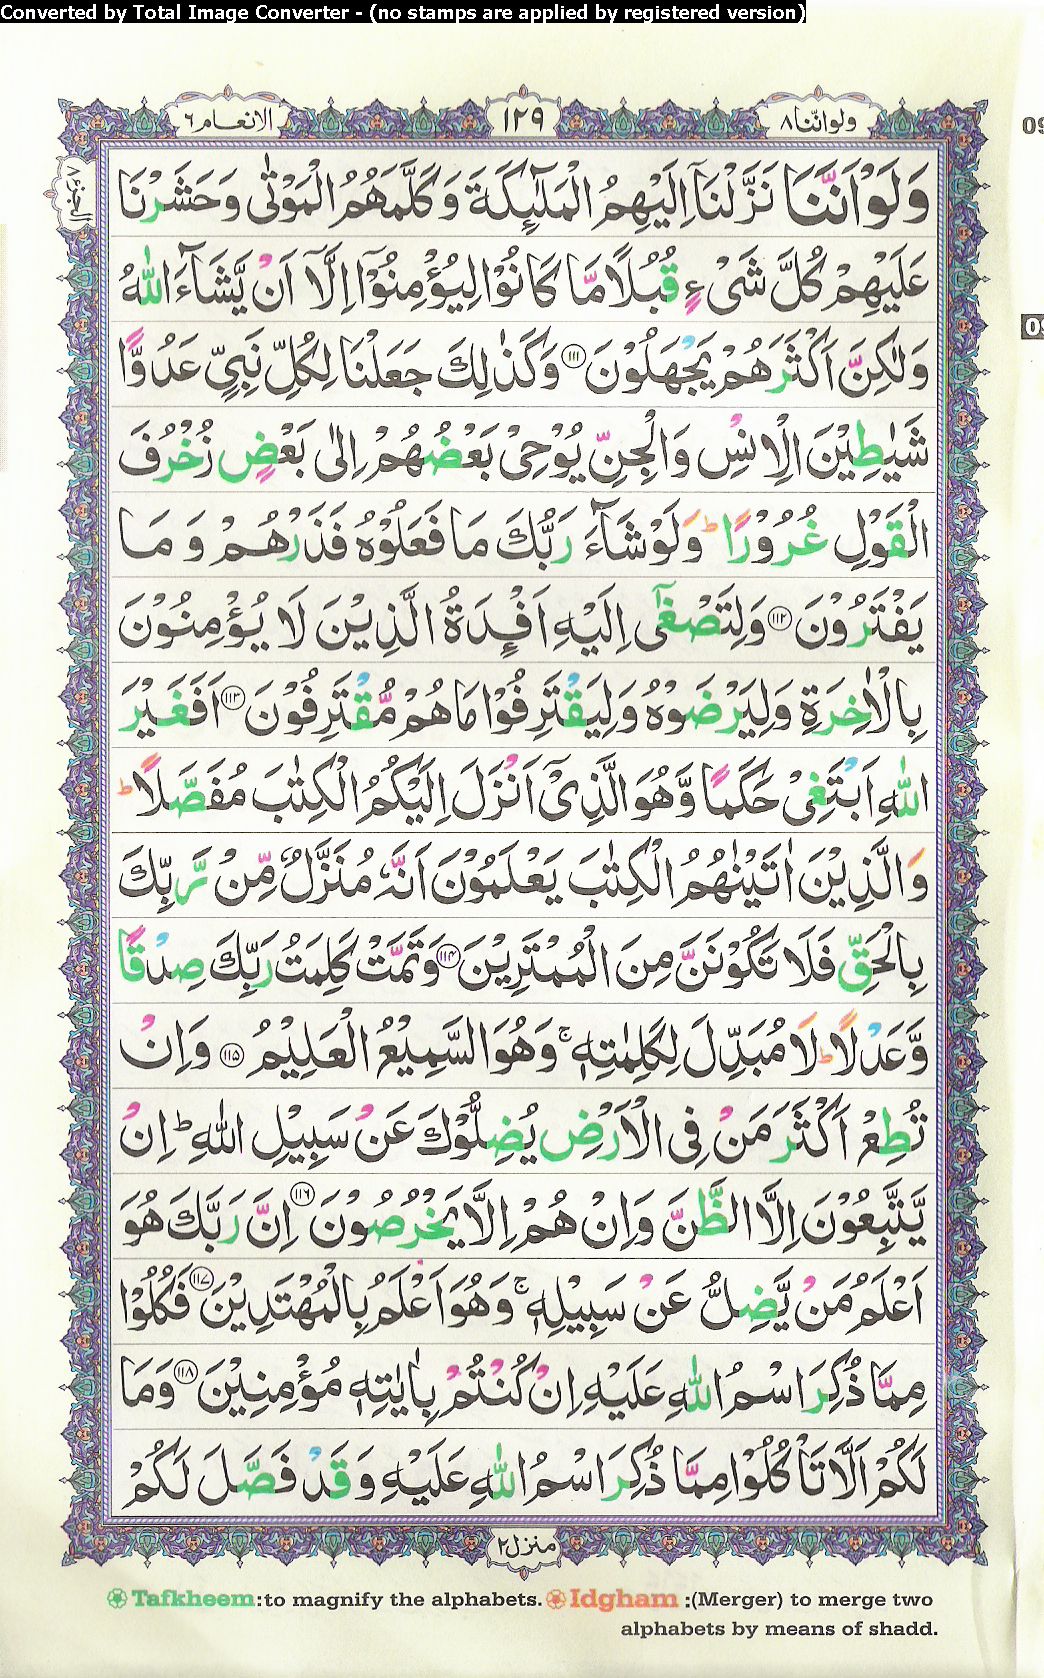 Converted by Total Image Converter - (no stamps are applied by registered version)
ولواننا ٨
١٢٩
الانعام ٦
الجزء ٨
وَلَوْ اَنَّنَا نَزَّلْنَاۤ اِلَيْهِمُ الْمَلٰٓئِكَةَ وَكَلَّمَهُمُ الْمَوْتٰى وَحَشَرْنَا
عَلَيْهِمْ كُلَّ شَىْءٍ قُبُلًا مَّا كَانُوْا لِيُؤْمِنُوْۤا اِلَّاۤ اَنْ يَّشَآءَ اللّٰهُ
وَلٰكِنَّ اَكْثَرَهُمْ يَجْهَلُوْنَ ١١١ وَكَذٰلِكَ جَعَلْنَا لِكُلِّ نَبِىٍّ عَدُوًّا
شَيٰطِيْنَ الْاِنْسِ وَالْجِنِّ يُوْحِىْ بَعْضُهُمْ اِلٰى بَعْضٍ زُخْرُفَ
الْقَوْلِ غُرُوْرًا ؕ وَلَوْ شَآءَ رَبُّكَ مَا فَعَلُوْهُ فَذَرْهُمْ وَمَا
يَفْتَرُوْنَ ١١٢ وَلِتَصْغٰۤى اِلَيْهِ اَفْـِٕدَةُ الَّذِيْنَ لَا يُؤْمِنُوْنَ
بِالْاٰخِرَةِ وَلِيَرْضَوْهُ وَلِيَقْتَرِفُوْا مَا هُمْ مُّقْتَرِفُوْنَ ١١٣ اَفَغَيْرَ
اللّٰهِ اَبْتَغِىْ حَكَمًا وَّهُوَ الَّذِىْۤ اَنْزَلَ اِلَيْكُمُ الْكِتٰبَ مُفَصَّلًا ؕ
وَالَّذِيْنَ اٰتَيْنٰهُمُ الْكِتٰبَ يَعْلَمُوْنَ اَنَّهٗ مُنَزَّلٌ مِّنْ رَّبِّكَ
بِالْحَقِّ فَلَا تَكُوْنَنَّ مِنَ الْمُمْتَرِيْنَ ١١٤ وَتَمَّتْ كَلِمَتُ رَبِّكَ صِدْقًا
وَّعَدْلًا ؕ لَا مُبَدِّلَ لِكَلِمٰتِهٖ ۚ وَهُوَ السَّمِيْعُ الْعَلِيْمُ ١١٥ وَاِنْ
تُطِعْ اَكْثَرَ مَنْ فِى الْاَرْضِ يُضِلُّوْكَ عَنْ سَبِيْلِ اللّٰهِ ؕ اِنْ
يَّتَّبِعُوْنَ اِلَّا الظَّنَّ وَاِنْ هُمْ اِلَّا يَخْرُصُوْنَ ١١٦ اِنَّ رَبَّكَ هُوَ
اَعْلَمُ مَنْ يَّضِلُّ عَنْ سَبِيْلِهٖ ۚ وَهُوَ اَعْلَمُ بِالْمُهْتَدِيْنَ ١١٧ فَكُلُوْا
مِمَّا ذُكِرَ اسْمُ اللّٰهِ عَلَيْهِ اِنْ كُنْتُمْ بِاٰيٰتِهٖ مُؤْمِنِيْنَ ١١٨ وَمَا
لَكُمْ اَلَّا تَاْكُلُوْا مِمَّا ذُكِرَ اسْمُ اللّٰهِ عَلَيْهِ وَقَدْ فَصَّلَ لَكُمْ
منزل ٢
Tafkheem:to magnify the alphabets. Idgham :(Merger) to merge two
alphabets by means of shadd.